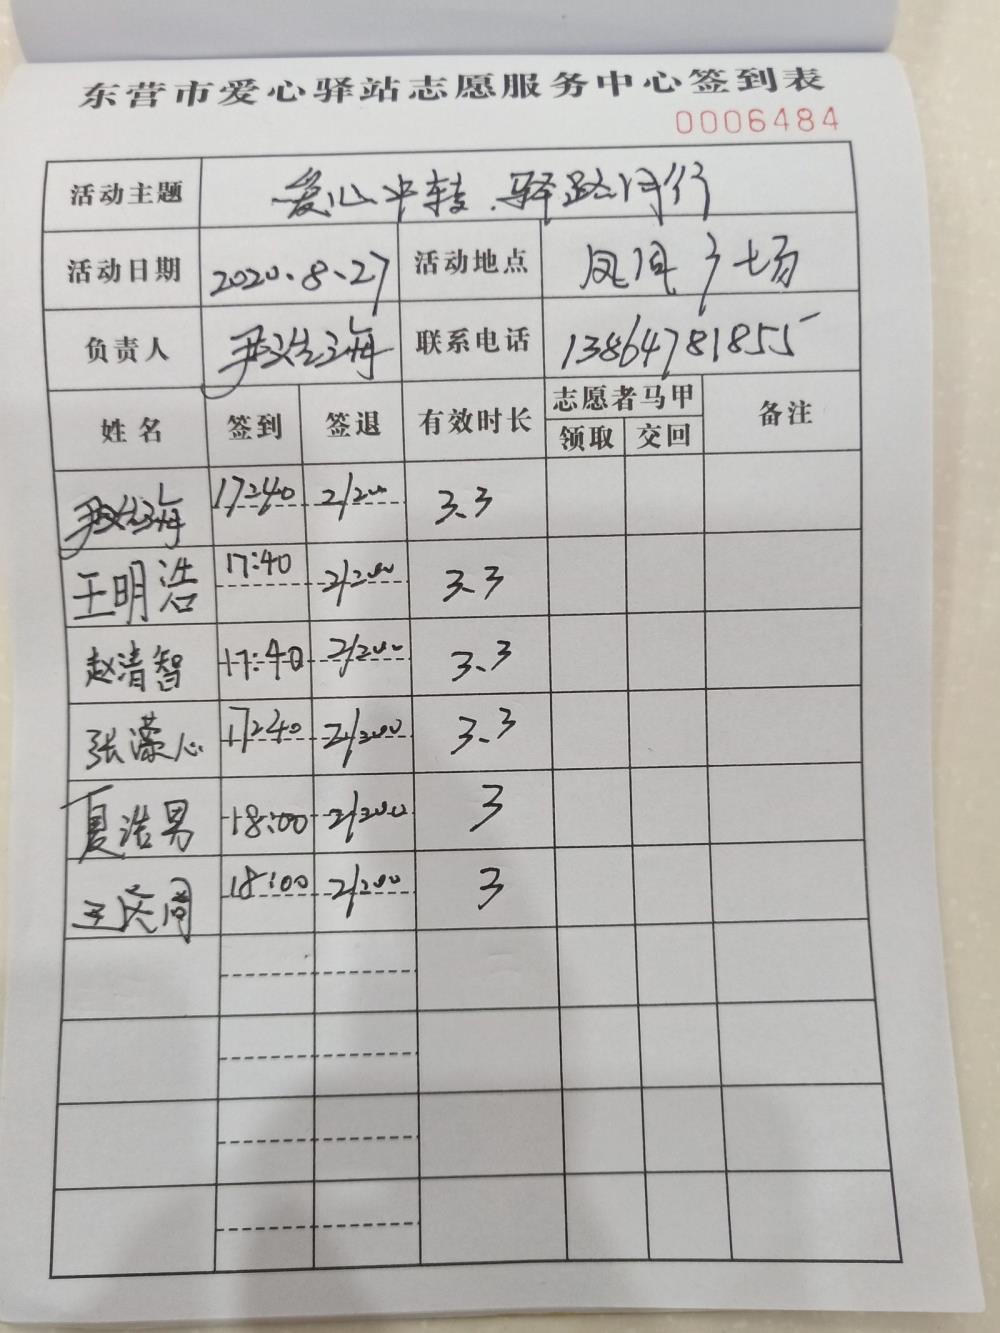 东营市爱心驿站志愿服务中心签到表
0006484
活动主题 爱心中转、驿路同行
活动日期 2020.8.27 活动地点 凤凰广场
负责人 海 联系电话 13864781855
姓名 签到 签退 有效时长 志愿者马甲 备注
领取 交回
海 17:40 21:00 3.3
王明浩 17:40 21:00 3.3
赵清智 17:40 21:00 3.3
张濛心 17:40 21:00 3.3
夏浩男 18:00 21:00 3
王庆同 18:00 21:00 3